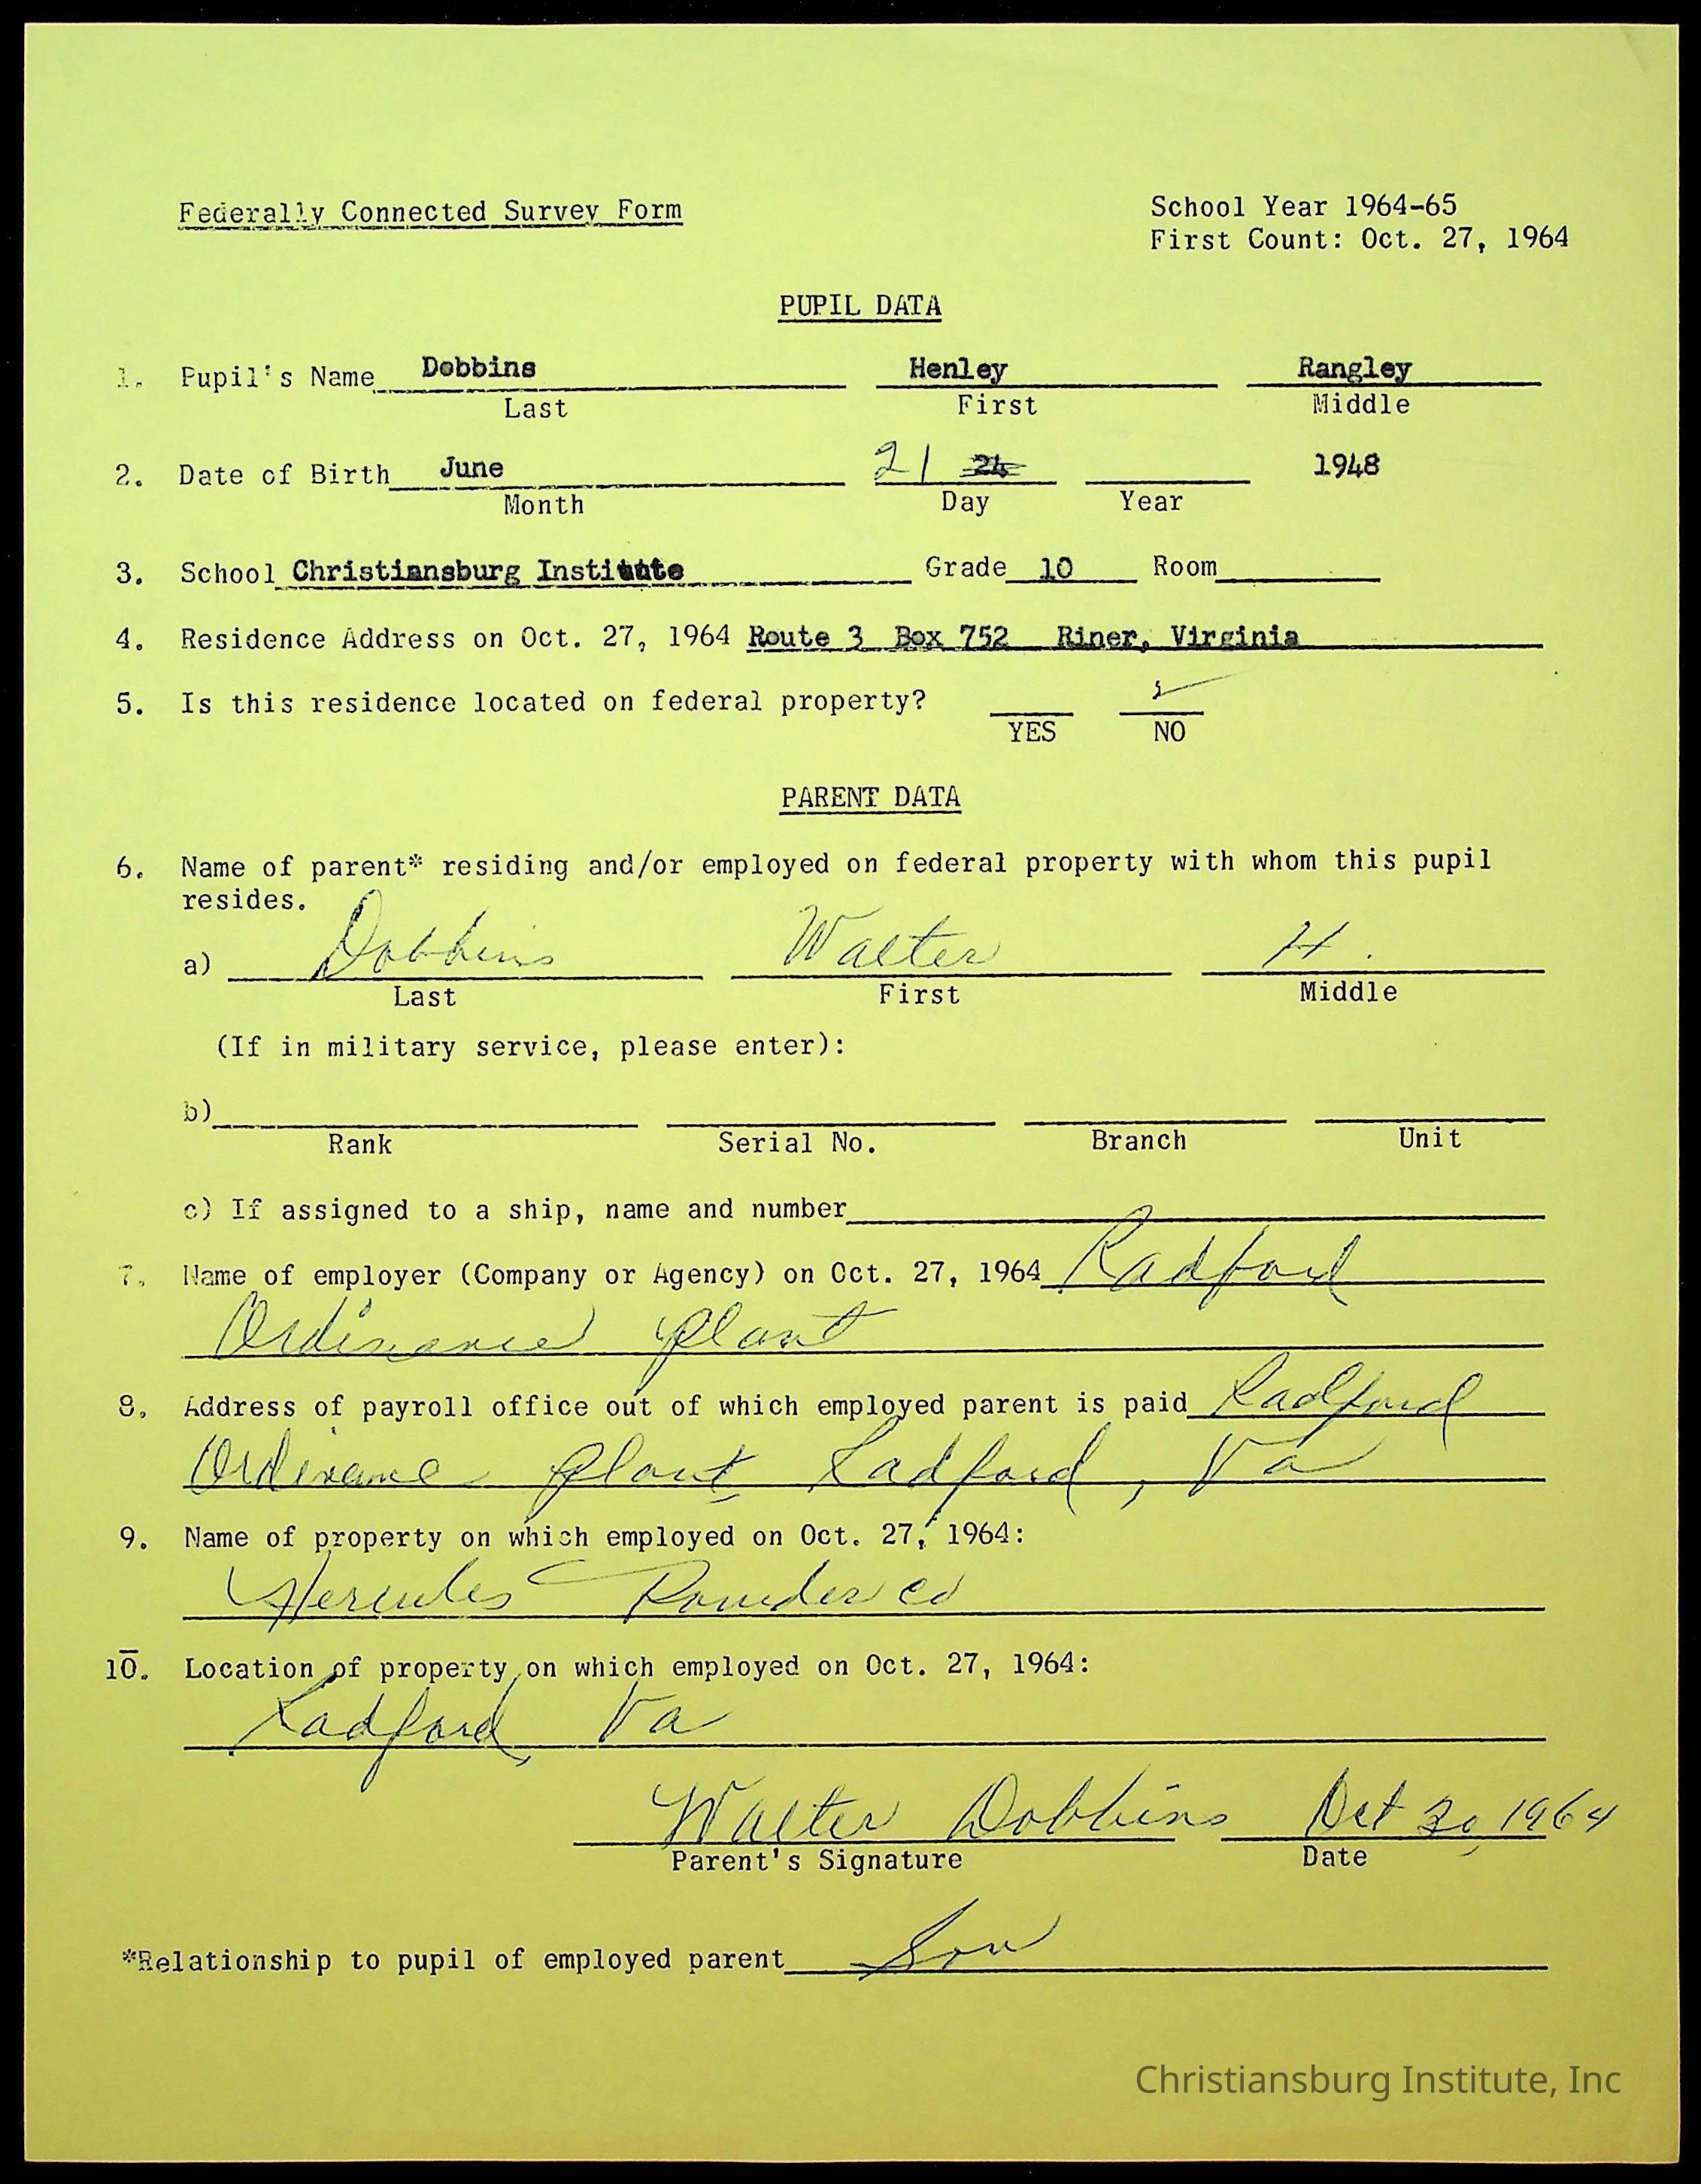 Federally Connected Survey Form
School Year 1964-65
First Count: Oct. 27, 1964
PUPIL DATA
1. Pupil's Name Dobbins Henley Rangley
Last First Middle
2. Date of Birth June 21 24 1948
Month Day Year
3. School Christiansburg Institute Grade 10 Room
4. Residence Address on Oct. 27, 1964 Route 3 Box 752 Riner, Virginia
5. Is this residence located on federal property? ✓
YES NO
PARENT DATA
6. Name of parent* residing and/or employed on federal property with whom this pupil
resides.
a) Dobbins Walter H.
Last First Middle
(If in military service, please enter):
b)
Rank Serial No. Branch Unit
c) If assigned to a ship, name and number
7. Name of employer (Company or Agency) on Oct. 27, 1964 Radford
Ordinance plant
8. Address of payroll office out of which employed parent is paid Radford
Ordinance plant, Radford, Va
9. Name of property on which employed on Oct. 27, 1964:
Hercules Powder co
10. Location of property on which employed on Oct. 27, 1964:
Radford, Va
Walter Dobbins Oct 30, 1964
Parent's Signature Date
*Relationship to pupil of employed parent Son
Christiansburg Institute, Inc